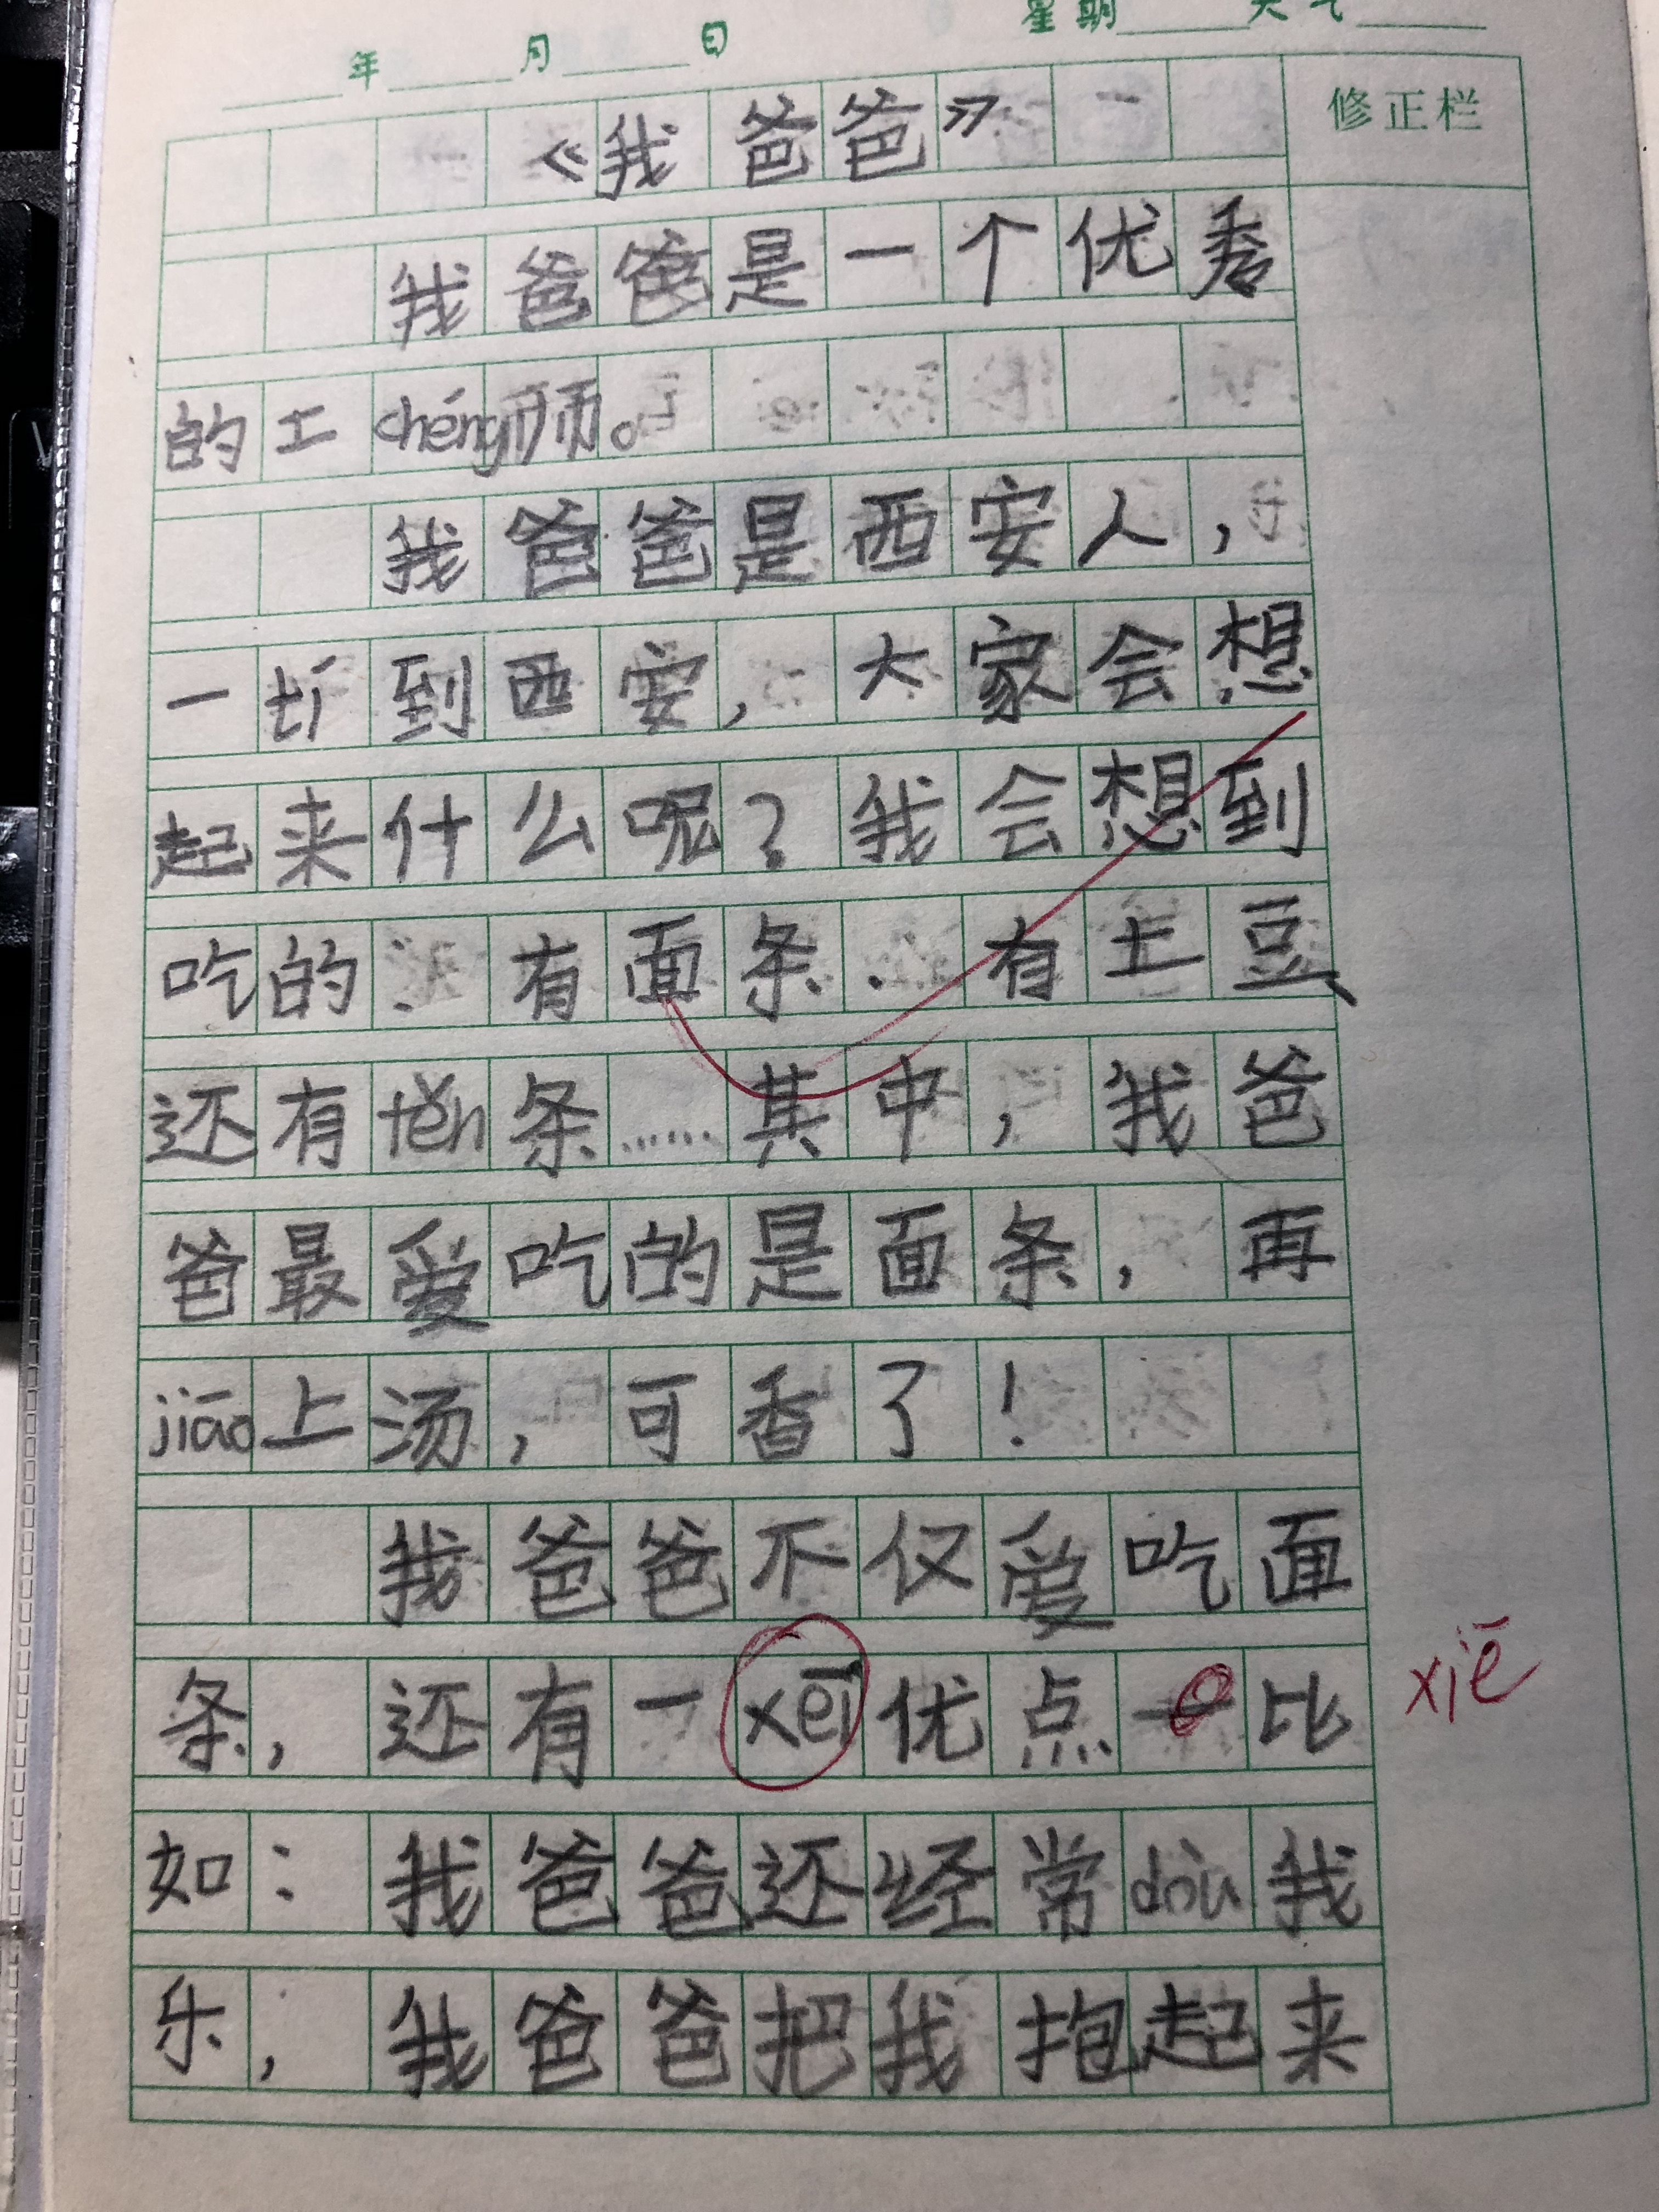 星期 天气
年 月 日
修正栏
《我爸爸》
我爸爸是一个优秀
的工chéng师。
我爸爸是西安人，
一tí到西安，大家会想
起来什么呢？我会想到
吃的：有面条、有土豆、
还有fěn条……其中，我爸
爸最爱吃的是面条，再
jiāo上汤，可香了！
我爸爸不仅爱吃面
条，还有一xēi优点 比
xiē
如：我爸爸还经常dòu我
乐，我爸爸把我抱起来